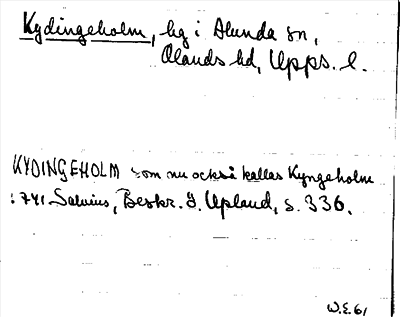 Kydingeholm, hg i Alunda sn,
Olands hd, Upps. l.
KYDINGEHOLM som nu också kallas Kyngeholm
: 741 Salvius, Beskr. ö. Upland, s. 336.
W.E. 61